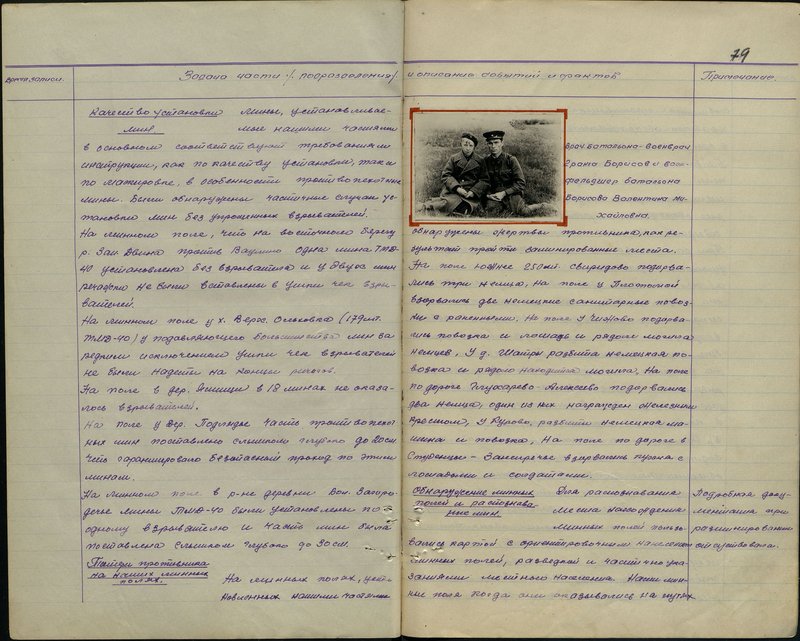 79
Время записи.
Задача части /подразделения/
и описание событий и фактов
Примечание.
Качество установки мины, устанавливае-
мин. мые нашими частями
в основном соответствуют требованиям
инструкции, как по качеству установки, так и
по маскировке, в особенности противопехотные
мины. Были обнаружены частичные случаи ус-
тановки мин без упрощенных взрывателей.
На минном поле, что на восточном берегу
р. Зап Двина против одна мина ТМД-
40 установлена без взрывателя и у двух мин
не были вставлены в ушки чек взры-
вателей.
На минном поле у х. Верх. Ольховка (179 шт.
ТМД-40) у подавляющего большинства мин за
редким исключением ушки чек взрывателей
не были надеты на концы рычагов.
На поле в дер. в 18 минах не оказа-
лось взрывателей.
На поле у дер. часть противопехот-
ных мин поставлено слишком глубоко до 20 см.
Чего гарантировало безопасный проход по этим
минам.
На минном поле в р-не деревни Бол. Загоро-
дье мины ТМД-40 были установлены по
одному взрывателю и часть мин была
поставлена слишком глубоко до 30 см.
Потери противника
на наших минных
полях. На минных полях, уста-
новленных нашими частями
Врач батальона-военврач
3 ранга Борисов и воен-
фельдшер батальона
Борисова Валентина Ми-
хайловна.
обнаружены жертвы противника, как ре-
зультат пройти заминированные места.
На поле южнее 250 мт. Свиридово подорва-
лись три немца, на поле у Платоной
взорвались две немецкие санитарные повоз-
ки с раненными. На поле у Чижово подорва-
лись повозка и лошадь и рядом могила
немцев. У д. Шатры разбита немецкая по-
возка и рядом находится могила. На поле
по дороге Глухарево-Алексеево подорвались
два немца, один из них награжден железным
крестом, у Курово, разбиты немецкая ма-
шина и повозка. На поле по дороге в
Студенцы - Замостречье взорвалась пушка с
лошадьми и солдатами.
Обнаружение минных Для распознавания
полей и распознава- места нахождения
ние мин. минных полей пользо-
вались картой с ориентировочным нанесением
минных полей, разведкой и частично ука-
заниями местного населения. Наши мин-
ные поля когда они оказывались на путях
Подробная доку-
ментация при
разминировании
отсутствовала.